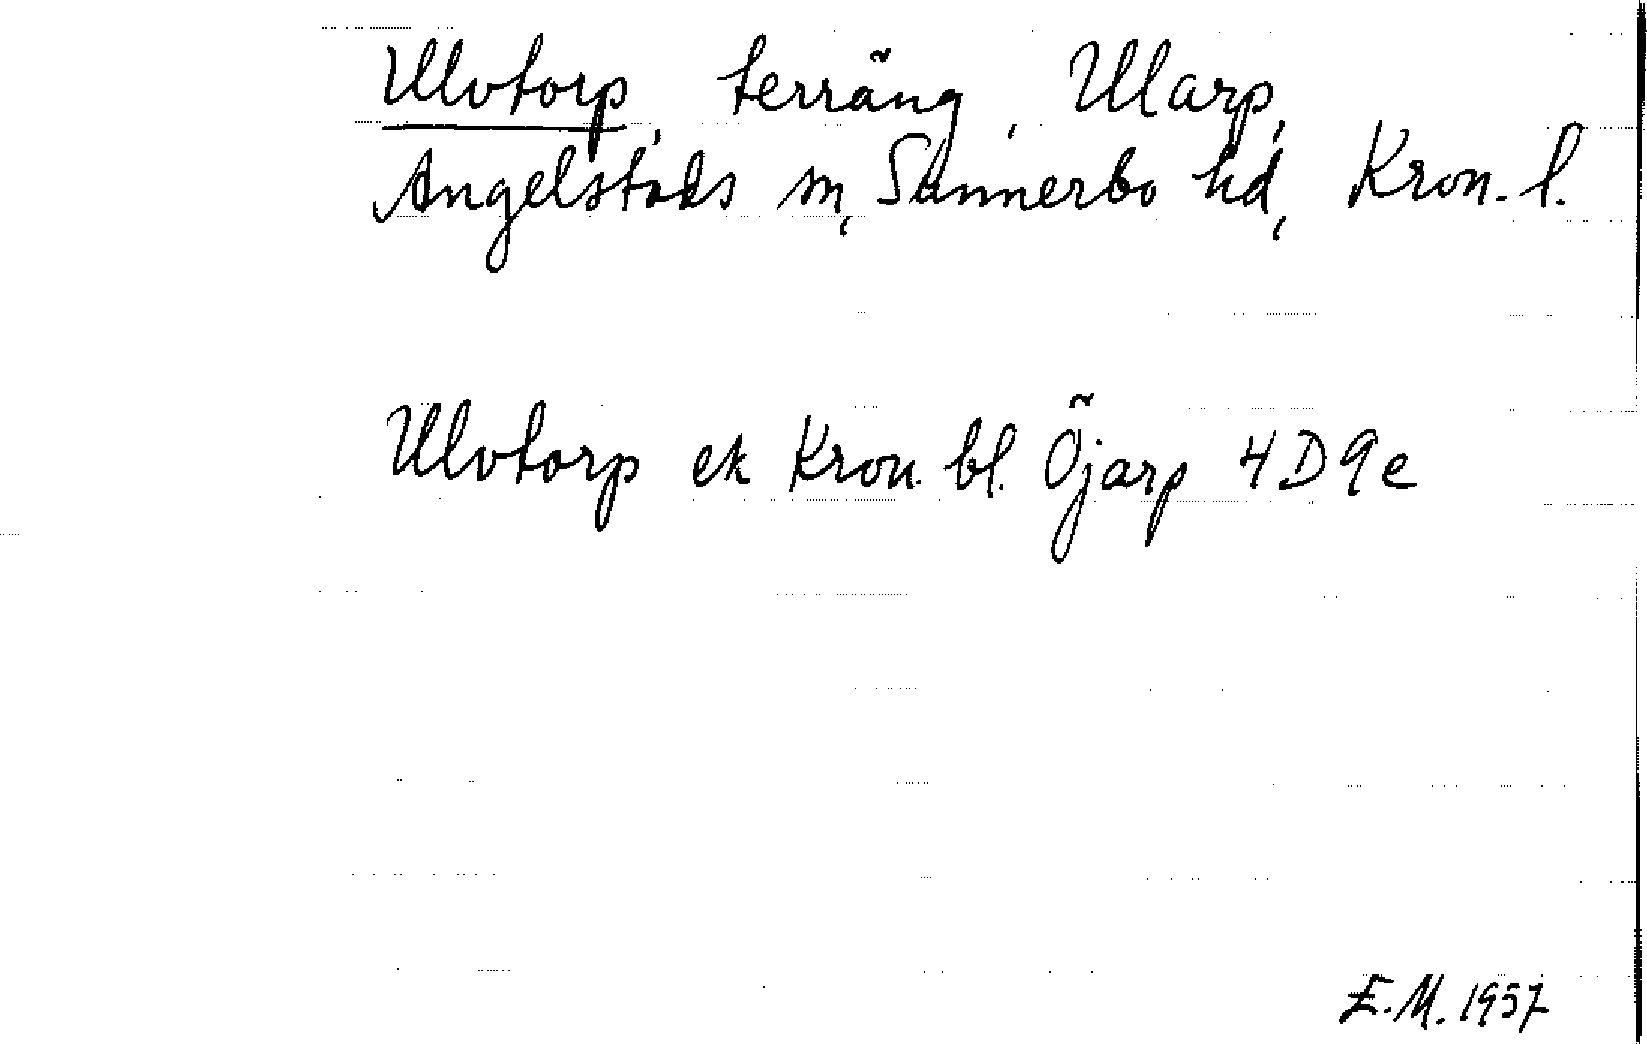 Ulvtorp, terräng, Ularp,
Angelstads sn, Sunnerbo hd, Kron. l.
Ulvtorp ek Kron. bl. Öjarp 4D9e
E.M. 1957